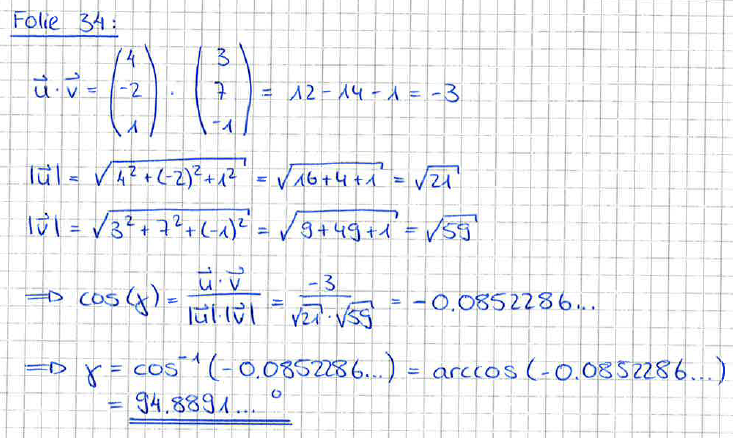 Folie 34:
u⃗ · v⃗ = (4 -2 1) · (3 7 -1) = 12 - 14 - 1 = -3
|u⃗| = √(4² + (-2)² + 1²) = √(16 + 4 + 1) = √21
|v⃗| = √(3² + 7² + (-1)²) = √(9 + 49 + 1) = √59
⇒ cos(γ) = (u⃗ · v⃗)/(|u⃗| · |v⃗|) = -3/(√21 · √59) = -0.0852286...
⇒ γ = cos⁻¹(-0.0852286...) = arccos(-0.0852286...)
= 94.8891...°